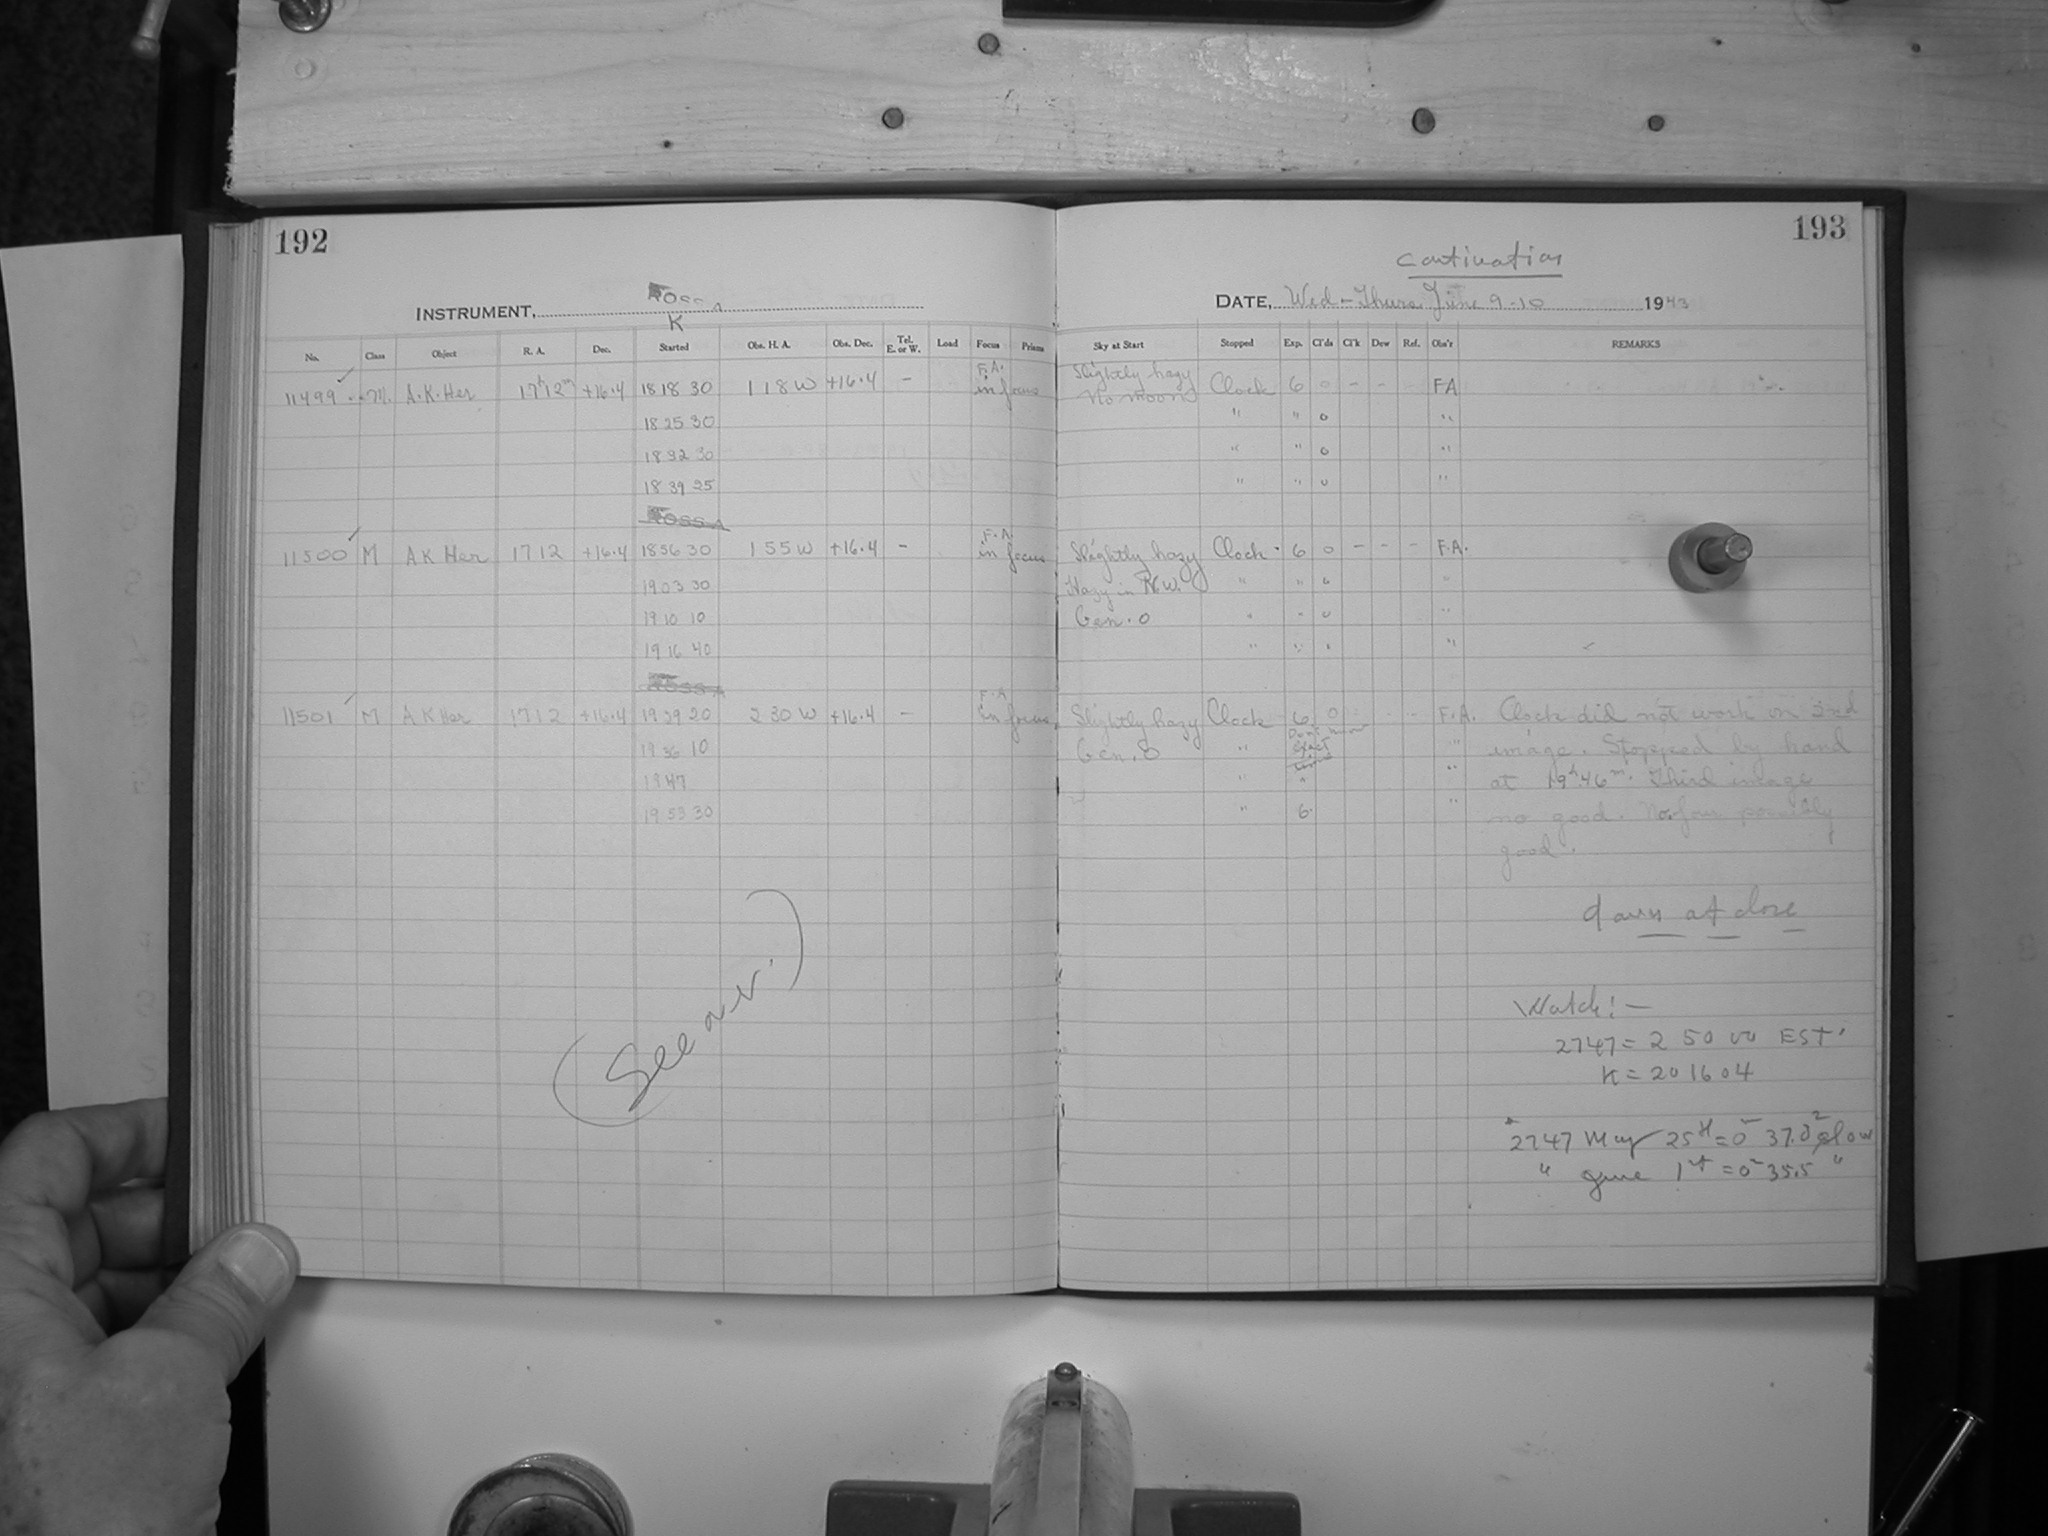 192
INSTRUMENT, ROSS A
K
No. Class Object R. A. Dec. Started Obs. H. A. Obs. Dec. Tel. E. or W. Load Focus Prisms
11499 M A.K.Her 17h12m +16.4 18 18 30 1 18 W +16.4 - F.A. in focus
18 25 30
18 32 30
18 39 25
ROSS A
11500 M AK Her 17 12 +16.4 18 56 30 1 55 W +16.4 - F.A. in focus
19 03 30
19 10 10
19 16 40
ROSS A
11501 M AK Her 17 12 +16.4 19 29 20 2 30 W +16.4 - F.A. in focus
19 36 10
19 47
19 53 30
(See over.)
193
continuation
DATE, Wed-Thurs June 9-10 1943
Sky at Start Stopped Exp. Cl'ds Cl'k Dew Ref. Obs'r REMARKS
Slightly hazy No moon Clock 6 0 - - F.A
" " 0 "
" " 0 "
" " 0 "
Slightly hazy Clock 6 0 - - - F.A.
Hazy in N.W. " " 0 "
Gen. 0 " " 0 "
" " "
Slightly hazy Clock 6 0 - - F.A. Clock did not work on 2nd
Gen. 0 " Don't know exact time " image. Stopped by hand
" " " at 19h46m. Third image
" 6 " no good. No. four possibly
good.
dawn at close
Watch:-
2747 = 2 50 00 EST.
K = 20 16 04
2747 May 25 = 0 37. slow
" June 1st = 0 35.5 "